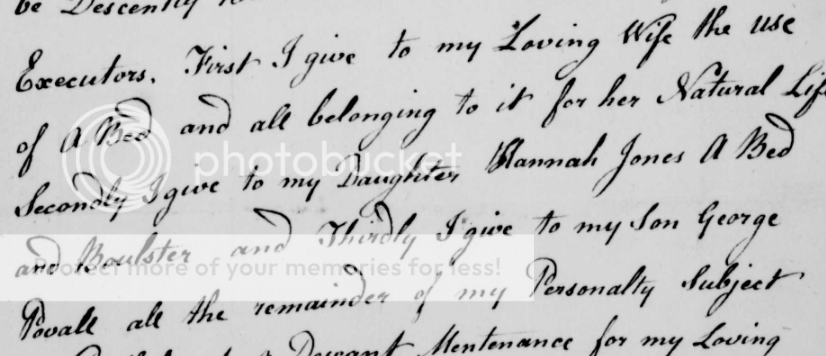 be Descently
Executors. First I give to my Loving Wife the use
of A Bed and all belonging to it for her Natural Life
Secondly I give to my Daughter Hannah Jones A Bed
and Boulster and Thirdly I give to my Son George
Povall all the remainder of my Personalty Subject
Mentenance for my Loving
photobucket
Protect more of your memories for less!